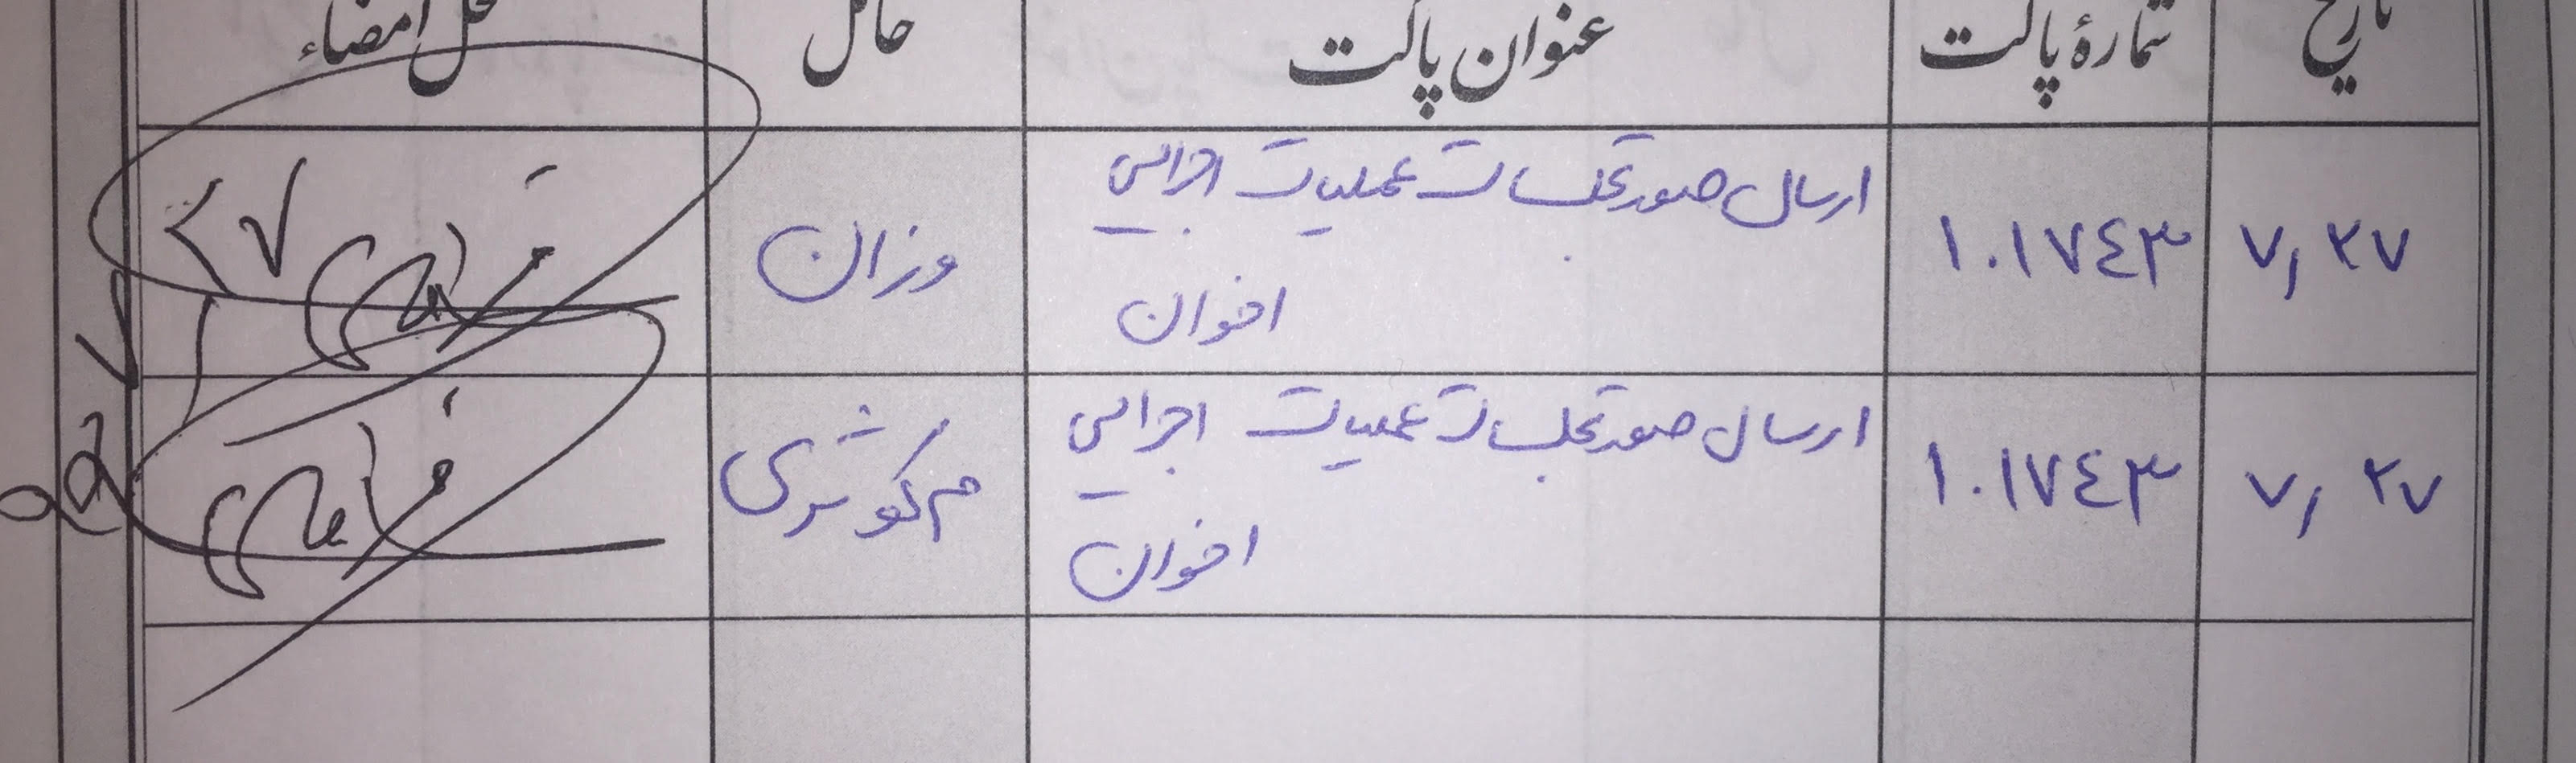 تاریخ شمارهٔ پاکت عنوان پاکت حامل محل امضاء
۷٫۲۷ ۱۰۱۷۴۳ ارسال صورتجلسات عملیات اجرایی وزان
اخوان
۲۷
۷٫۲۷ ۱۰۱۷۴۳ ارسال صورتجلسات عملیات اجرایی م کوثری
اخوان